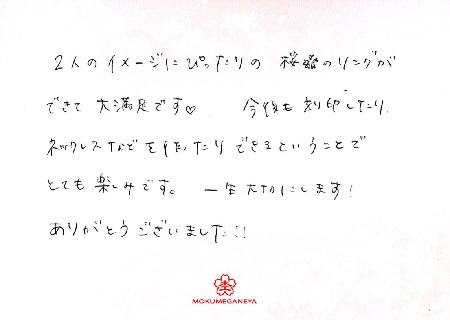 2人のイメージにぴったりの 桜のリングが
できて 大満足です♡ 今後も 刻印したり、
ネックレスなどを作ったりできるということで
とても楽しみです。 一生大切にします!
ありがとうございました!!
MOKUMEGANEYA